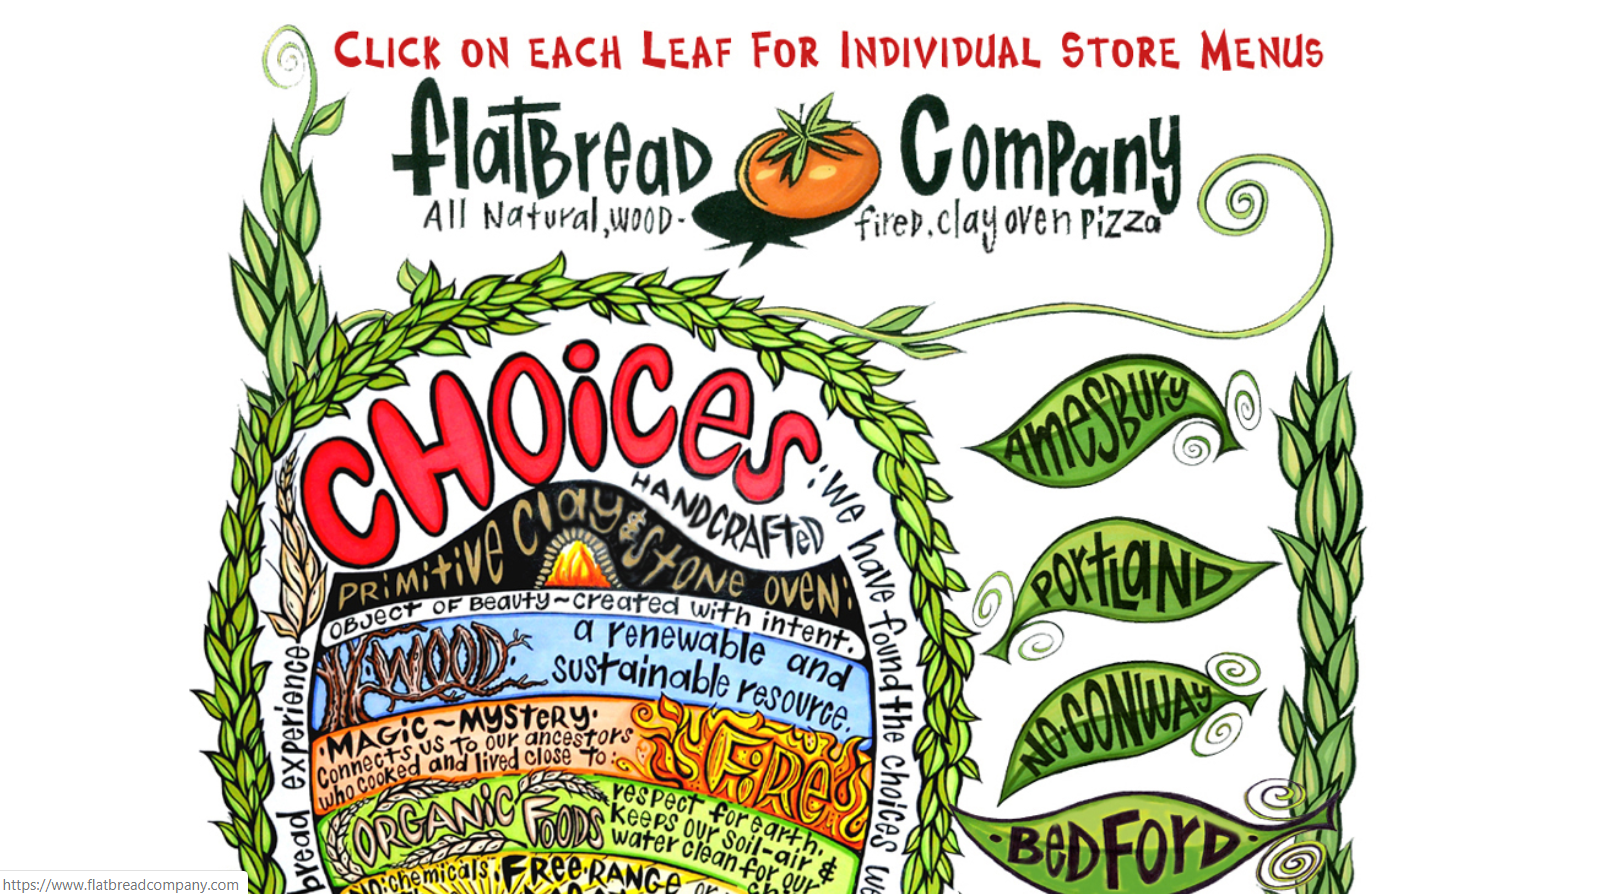 Click on each Leaf For Individual Store Menus
flatBread Company
All Natural, wood-fired, clay oven pizza
CHOices
: we have found the choices we
HANDCRAFTeD
PRIMITIVE Clay & STONE OVEN:
OBJECT OF Beauty~created with intent.
WOOD.
a renewable and
sustainable resource.
·MAGIC~MYSTERY·
Connects us to our ancestors
who cooked and lived close to:
FiRe
ORGANIC FOODS
respect for earth,
Keeps our soil-air &
water clean for our
chemicals · FREE RANGE or
bread experience
AMESBURY
PORTLAND
NO. CONWAY
·BEDFORD·
https://www.flatbreadcompany.com